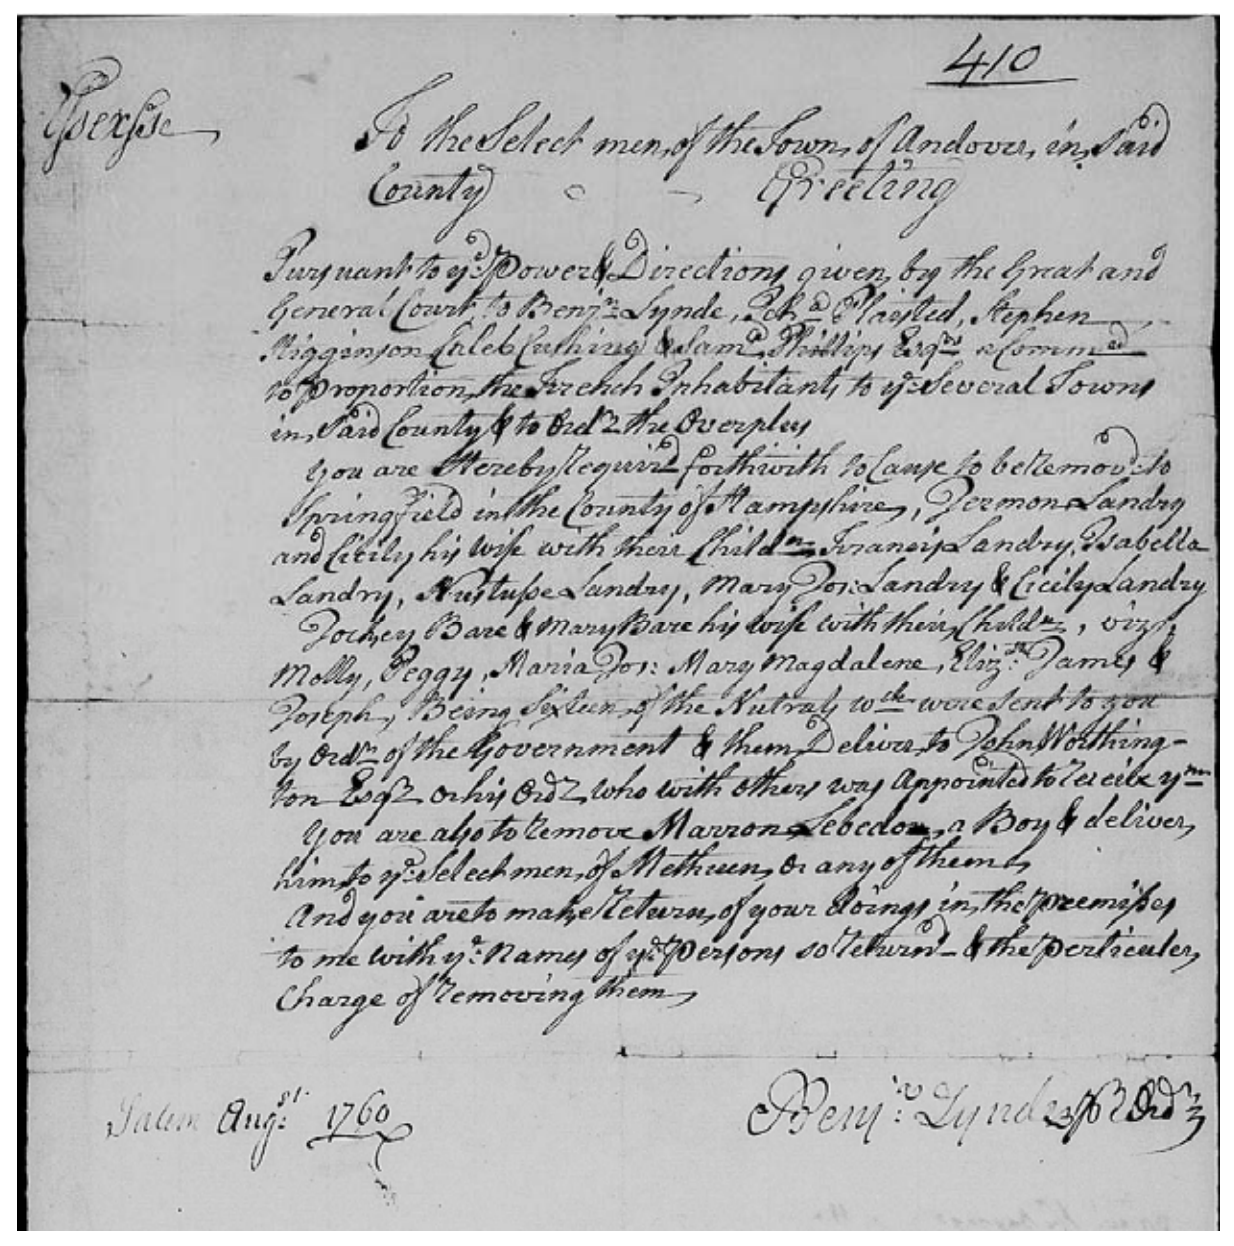 410
Essex ss
To the Select men, of the Town, of Andover, in, Said
County Greeting
Pursuant to ye Power & Directions given, by the Great and
General Court to Benjn Lynde, Ichd Plaisted, Stephen
Higginson Caleb Cushing & Saml Phillips Esqrs a Commtee
to Proportion, the French Inhabitants to ye Several Towns
in, Said County & to Ordr the Overplus
You are Hereby Requir'd forthwith to Cause to be Remov'd to
Springfield in the County of Hampshire, Jermon Landry
and Cicily his Wife with their Childrn Francis Landry, Isabella
Landry, Landry, Mary Jos: Landry & Cicily Landry
Jockey Bare & Mary Bare his Wife with their, Childrn, vizt
Molly, Peggy, Maria Jos: Mary Magdalene, Elizth: James &
Joseph, Being Sixteen, of the Nutrals wch were sent to you
by Ordr of the Government & them, Deliver, to John Worthing-
ton Esqr or his Ordr who with others was Appointed to receive ym
You are also to remove Marron, a Boy & deliver,
him, to ye Selectmen, of Methuen, or any of them,
And you are to make Return, of your doings in, the premisses
to me with ye Names of ye Persons so return'd & the perticuler,
Charge of removing them,
Salem Augst: 1760
Benjn: Lynde pr Ordr